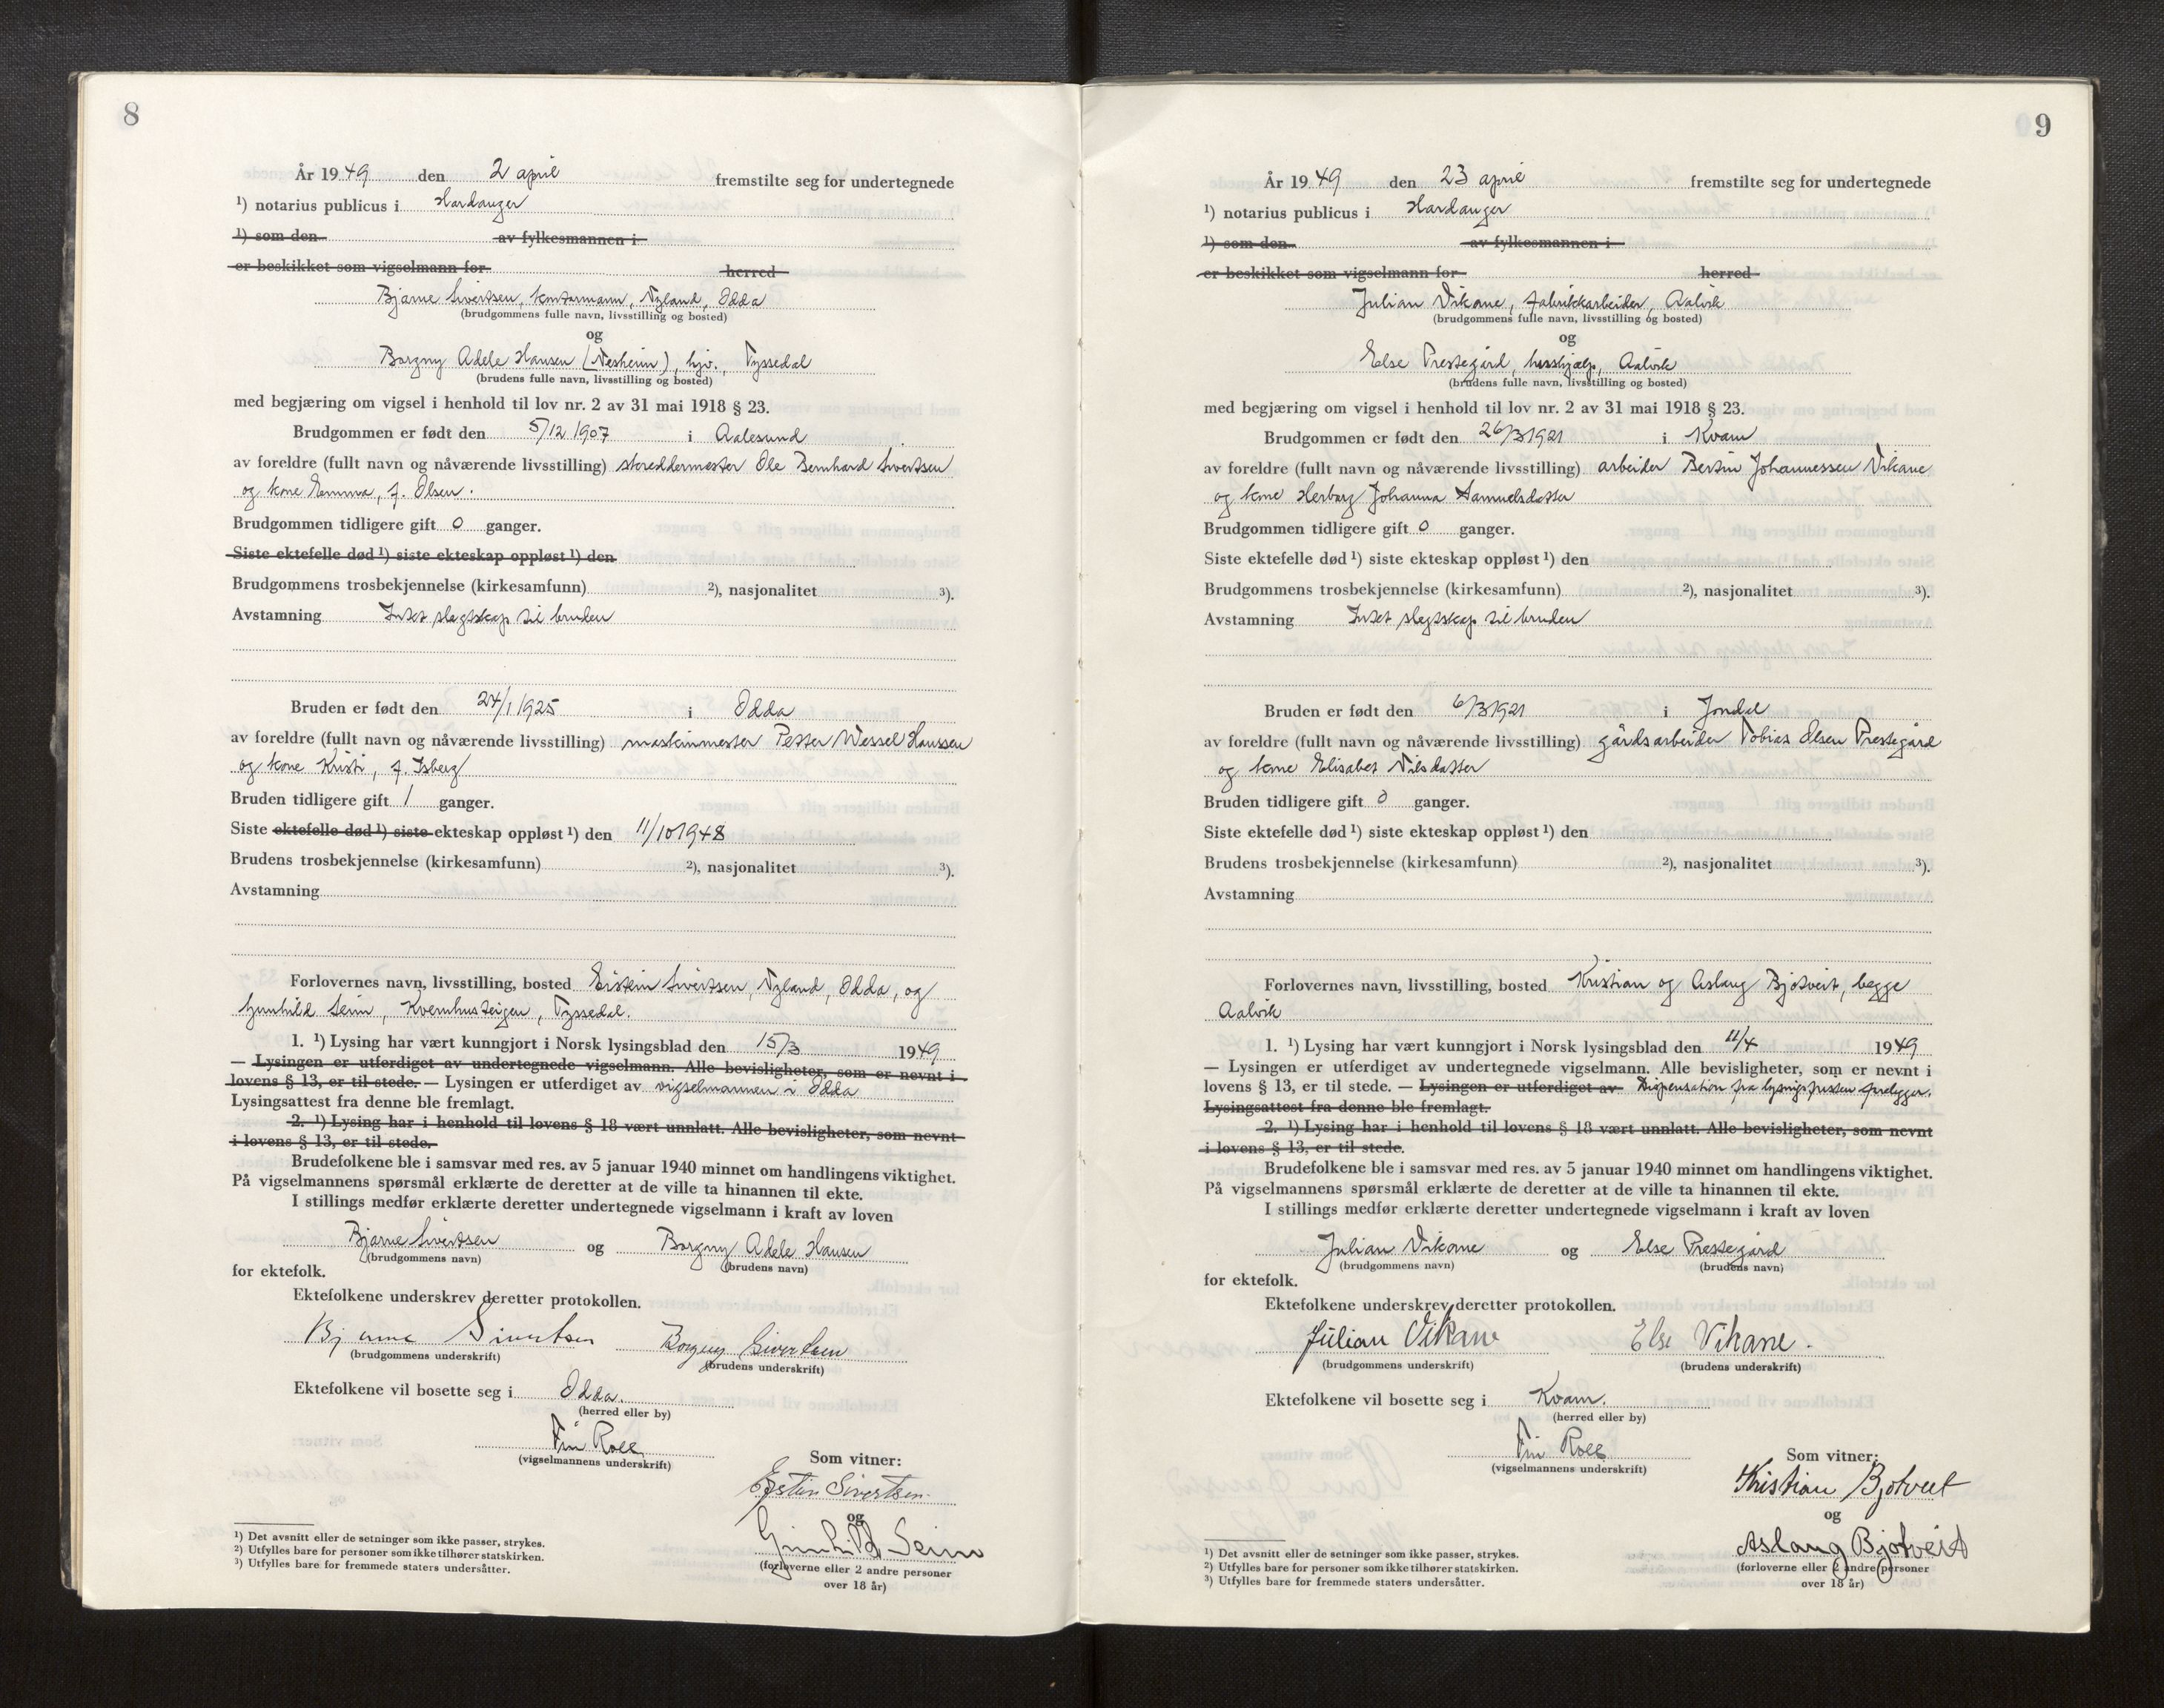 8
År 1949 den 2 april fremstilte seg for undertegnede
¹) notarius publicus i Hardanger
¹) som den av fylkesmannen i
er beskikket som vigselmann for herred
Bjarne Sivertsen, kontormann, Nyland, Odda
(brudgommens fulle navn, livsstilling og bosted)
og
Borgny Adele Hansen (Nesheim), hjv., Tyssedal
(brudens fulle navn, livsstilling og bosted)
med begjæring om vigsel i henhold til lov nr. 2 av 31 mai 1918 § 23.
Brudgommen er født den 5/12 1907 i Aalesund
av foreldre (fullt navn og nåværende livsstilling) skreddermester Ole Bernhard Sivertsen
og kone Emma, f. Olsen.
Brudgommen tidligere gift 0 ganger.
Siste ektefelle død ¹) siste ekteskap oppløst ¹) den
Brudgommens trosbekjennelse (kirkesamfunn) ²), nasjonalitet ³).
Avstamning Intet slegtskap til bruden
Bruden er født den 24/1 1925 i Odda
av foreldre (fullt navn og nåværende livsstilling) maskinmester Petter Wessel Hanssen
og kone Kristi, f. Isberg
Bruden tidligere gift 1 ganger.
Siste ektefelle død ¹) siste ekteskap oppløst ¹) den 11/10 1948
Brudens trosbekjennelse (kirkesamfunn) ²), nasjonalitet ³).
Avstamning
Forlovernes navn, livsstilling, bosted Eistein Sivertsen, Nyland, Odda, og
Gunhild Seim, Kvernhusteigen, Tyssedal.
1. ¹) Lysing har vært kunngjort i Norsk lysingsblad den 15/3 1949
— Lysingen er utferdiget av undertegnede vigselmann. Alle bevisligheter, som er nevnt i
lovens § 13, er til stede. — Lysingen er utferdiget av vigselmannen i Odda
Lysingsattest fra denne ble fremlagt.
2. ¹) Lysing har i henhold til lovens § 18 vært unnlatt. Alle bevisligheter, som nevnt
i lovens § 13, er til stede.
Brudefolkene ble i samsvar med res. av 5 januar 1940 minnet om handlingens viktighet.
På vigselmannens spørsmål erklærte de deretter at de ville ta hinannen til ekte.
I stillings medfør erklærte deretter undertegnede vigselmann i kraft av loven
Bjarne Sivertsen og Borgny Adele Hansen
(brudgommens navn) (brudens navn)
for ektefolk.
Ektefolkene underskrev deretter protokollen.
Bjarne Sivertsen Borgny Sivertsen
(brudgommens underskrift) (brudens underskrift)
Ektefolkene vil bosette seg i Odda.
(herred eller by)
(vigselmannens underskrift)
Som vitner:
Eystein Sivertsen
og
Gunhild Seim
(forloverne eller 2 andre personer
over 18 år)
¹) Det avsnitt eller de setninger som ikke passer, strykes.
²) Utfylles bare for personer som ikke tilhører statskirken.
³) Utfylles bare for fremmede staters undersåtter.
9
År 1949 den 23 april fremstilte seg for undertegnede
¹) notarius publicus i Hardanger
¹) som den av fylkesmannen i
er beskikket som vigselmann for herred
Julian Vikane, fabrikkarbeider, Aalvik
(brudgommens fulle navn, livsstilling og bosted)
og
Else Prestegård, husshjælp, Aalvik
(brudens fulle navn, livsstilling og bosted)
med begjæring om vigsel i henhold til lov nr. 2 av 31 mai 1918 § 23.
Brudgommen er født den 26/3 1921 i Kvam
av foreldre (fullt navn og nåværende livsstilling) arbeider Bertin Johannessen Vikane
og kone Herborg Johanna Samuelsdatter
Brudgommen tidligere gift 0 ganger.
Siste ektefelle død ¹) siste ekteskap oppløst ¹) den
Brudgommens trosbekjennelse (kirkesamfunn) ²), nasjonalitet ³).
Avstamning Intet slegtskap til bruden
Bruden er født den 6/3 1921 i Jondal
av foreldre (fullt navn og nåværende livsstilling) gårdsarbeider Tobias Olsen Prestegård
og kone Elisabet Nilsdatter
Bruden tidligere gift 0 ganger.
Siste ektefelle død ¹) siste ekteskap oppløst ¹) den
Brudens trosbekjennelse (kirkesamfunn) ²), nasjonalitet ³).
Avstamning
Forlovernes navn, livsstilling, bosted Kristian og Aslaug Bjotveit, begge
Aalvik
1. ¹) Lysing har vært kunngjort i Norsk lysingsblad den 11/4 1949
— Lysingen er utferdiget av undertegnede vigselmann. Alle bevisligheter, som er nevnt i
lovens § 13, er til stede. — Lysingen er utferdiget av Dispensation fra lysingsfristen foreligger.
Lysingsattest fra denne ble fremlagt.
2. ¹) Lysing har i henhold til lovens § 18 vært unnlatt. Alle bevisligheter, som nevnt
i lovens § 13, er til stede.
Brudefolkene ble i samsvar med res. av 5 januar 1940 minnet om handlingens viktighet.
På vigselmannens spørsmål erklærte de deretter at de ville ta hinannen til ekte.
I stillings medfør erklærte deretter undertegnede vigselmann i kraft av loven
Julian Vikane og Else Prestegård
(brudgommens navn) (brudens navn)
for ektefolk.
Ektefolkene underskrev deretter protokollen.
Julian Vikane Else Vikane.
(brudgommens underskrift) (brudens underskrift)
Ektefolkene vil bosette seg i Kvam.
(herred eller by)
(vigselmannens underskrift)
Som vitner:
Kristian Bjotveit
og
Aslaug Bjotveit
(forloverne eller 2 andre personer
over 18 år)
¹) Det avsnitt eller de setninger som ikke passer, strykes.
²) Utfylles bare for personer som ikke tilhører statskirken.
³) Utfylles bare for fremmede staters undersåtter.